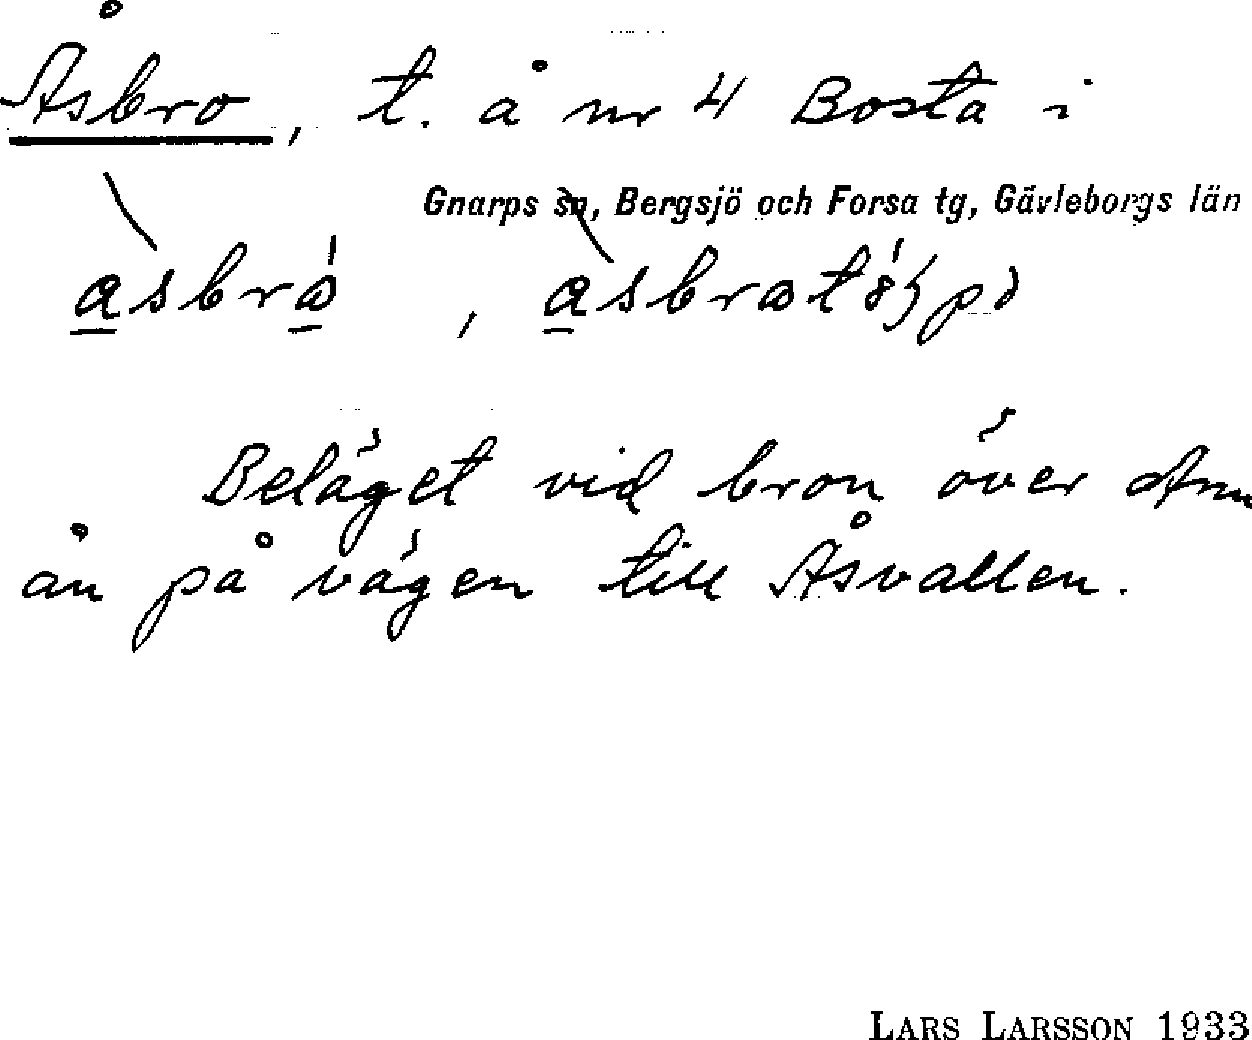 Åsbro, t. å nr 4 Bosta i
Gnarps sn, Bergsjö och Forsa tg, Gävleborgs län
Beläget vid bron över Ann
ån på vägen till Åsvallen.
LARS LARSSON 1933